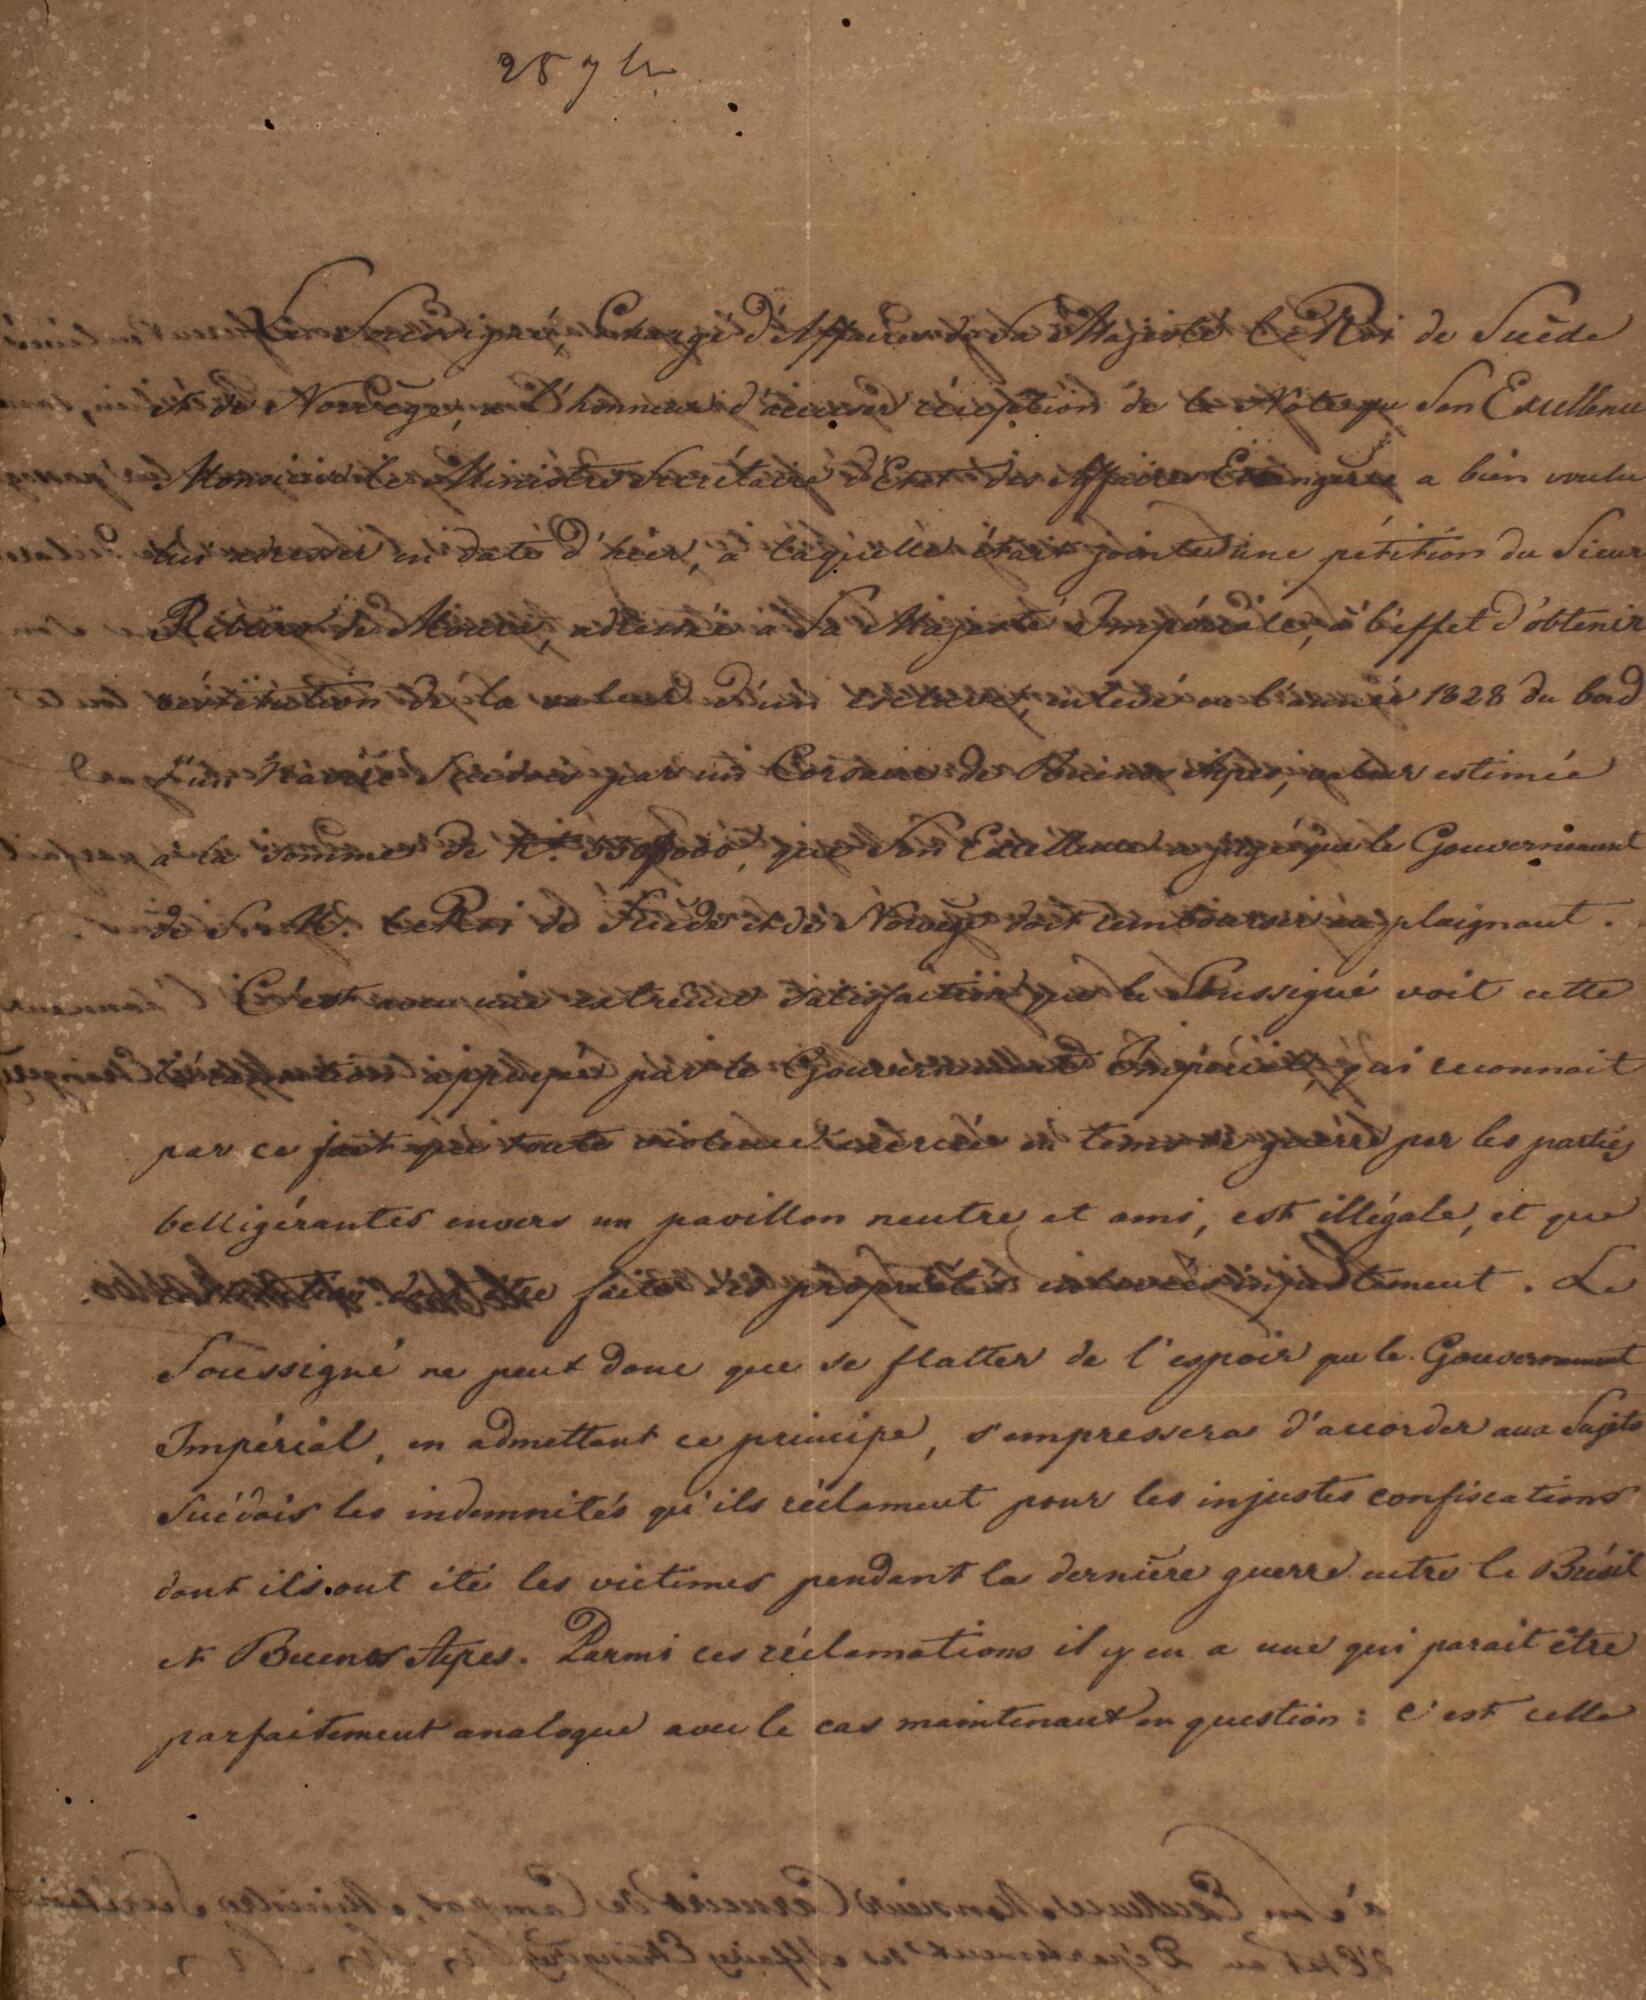 28 7br
Le Soussigné, Chargé d'Affaires de Sa Majesté le Roi de Suède
et de Norvège, a l'honneur d'accuser réception de la Note que Son Excellence
Monsieur le Ministre Secrétaire d'Etat des Affaires Etrangères a bien voulu
lui adresser en date d'hier, à laquelle était jointe une pétition du Sieur
Ribeiro de Moura, adressée à Sa Majesté Impériale, à l'effet d'obtenir
restitution de la valeur d'un esclave, enlevé en l'année 1828 du bord
d'un Navire Suédois par un Corsaire de Buenos Ayres, valeur estimée
à la somme de que Son Excellence a jugé que le Gouvernement
de S. M. le Roi de Suède et de Norvège doit rembourser au plaignant.
C'est avec une extrême satisfaction que le Soussigné voit cette
réclamation appuyée par le Gouvernement Impérial, qui reconnait
par ce fait que toute violence exercée en tems de guerre par les parties
belligérantes envers un pavillon neutre et ami, est illégale, et que
restitution doit être faite des propriétés enlevées injustement. Le
Soussigné ne peut donc que se flatter de l'espoir que le Gouvernement
Impérial, en admettant ce principe, s'empressera d'accorder aux Sujets
Suédois les indemnités qu'ils réclament pour les injustes confiscations
dont ils ont été les victimes pendant la dernière guerre entre le Brésil
et Buenos Ayres. Parmi ces réclamations il y en a une qui parait être
parfaitement analogue avec le cas maintenant en question: c'est celle